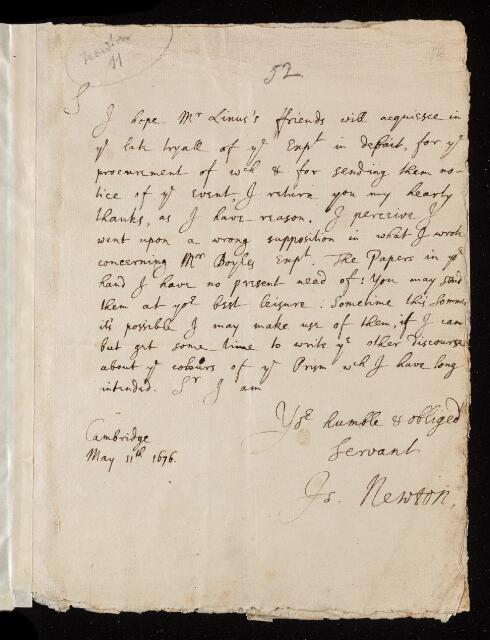 Newton
11
52
76
S
I hope Mr Linus's ffriends will acquiesce in
ye late tryall of ye Expt in debate, for ye
procurement of wch & for sending them no-
tice of ye event, I return you my hearty
thanks, as I have reason. I perceive I
went upon a wrong supposition in what I wrote
concerning Mr Boyles Expt. The Papers in yor
hand I have no present need of: You may send
them at yor best leisure: Sometime this Sommer
its possible I may make use of them, if I can
but get some time to write ye other discourse
about ye colours of ye Prism wch I have long
intended. Sr I am
Yor humble & obliged
Servant
Is. Newton.
Cambridge
May 11th 1676.